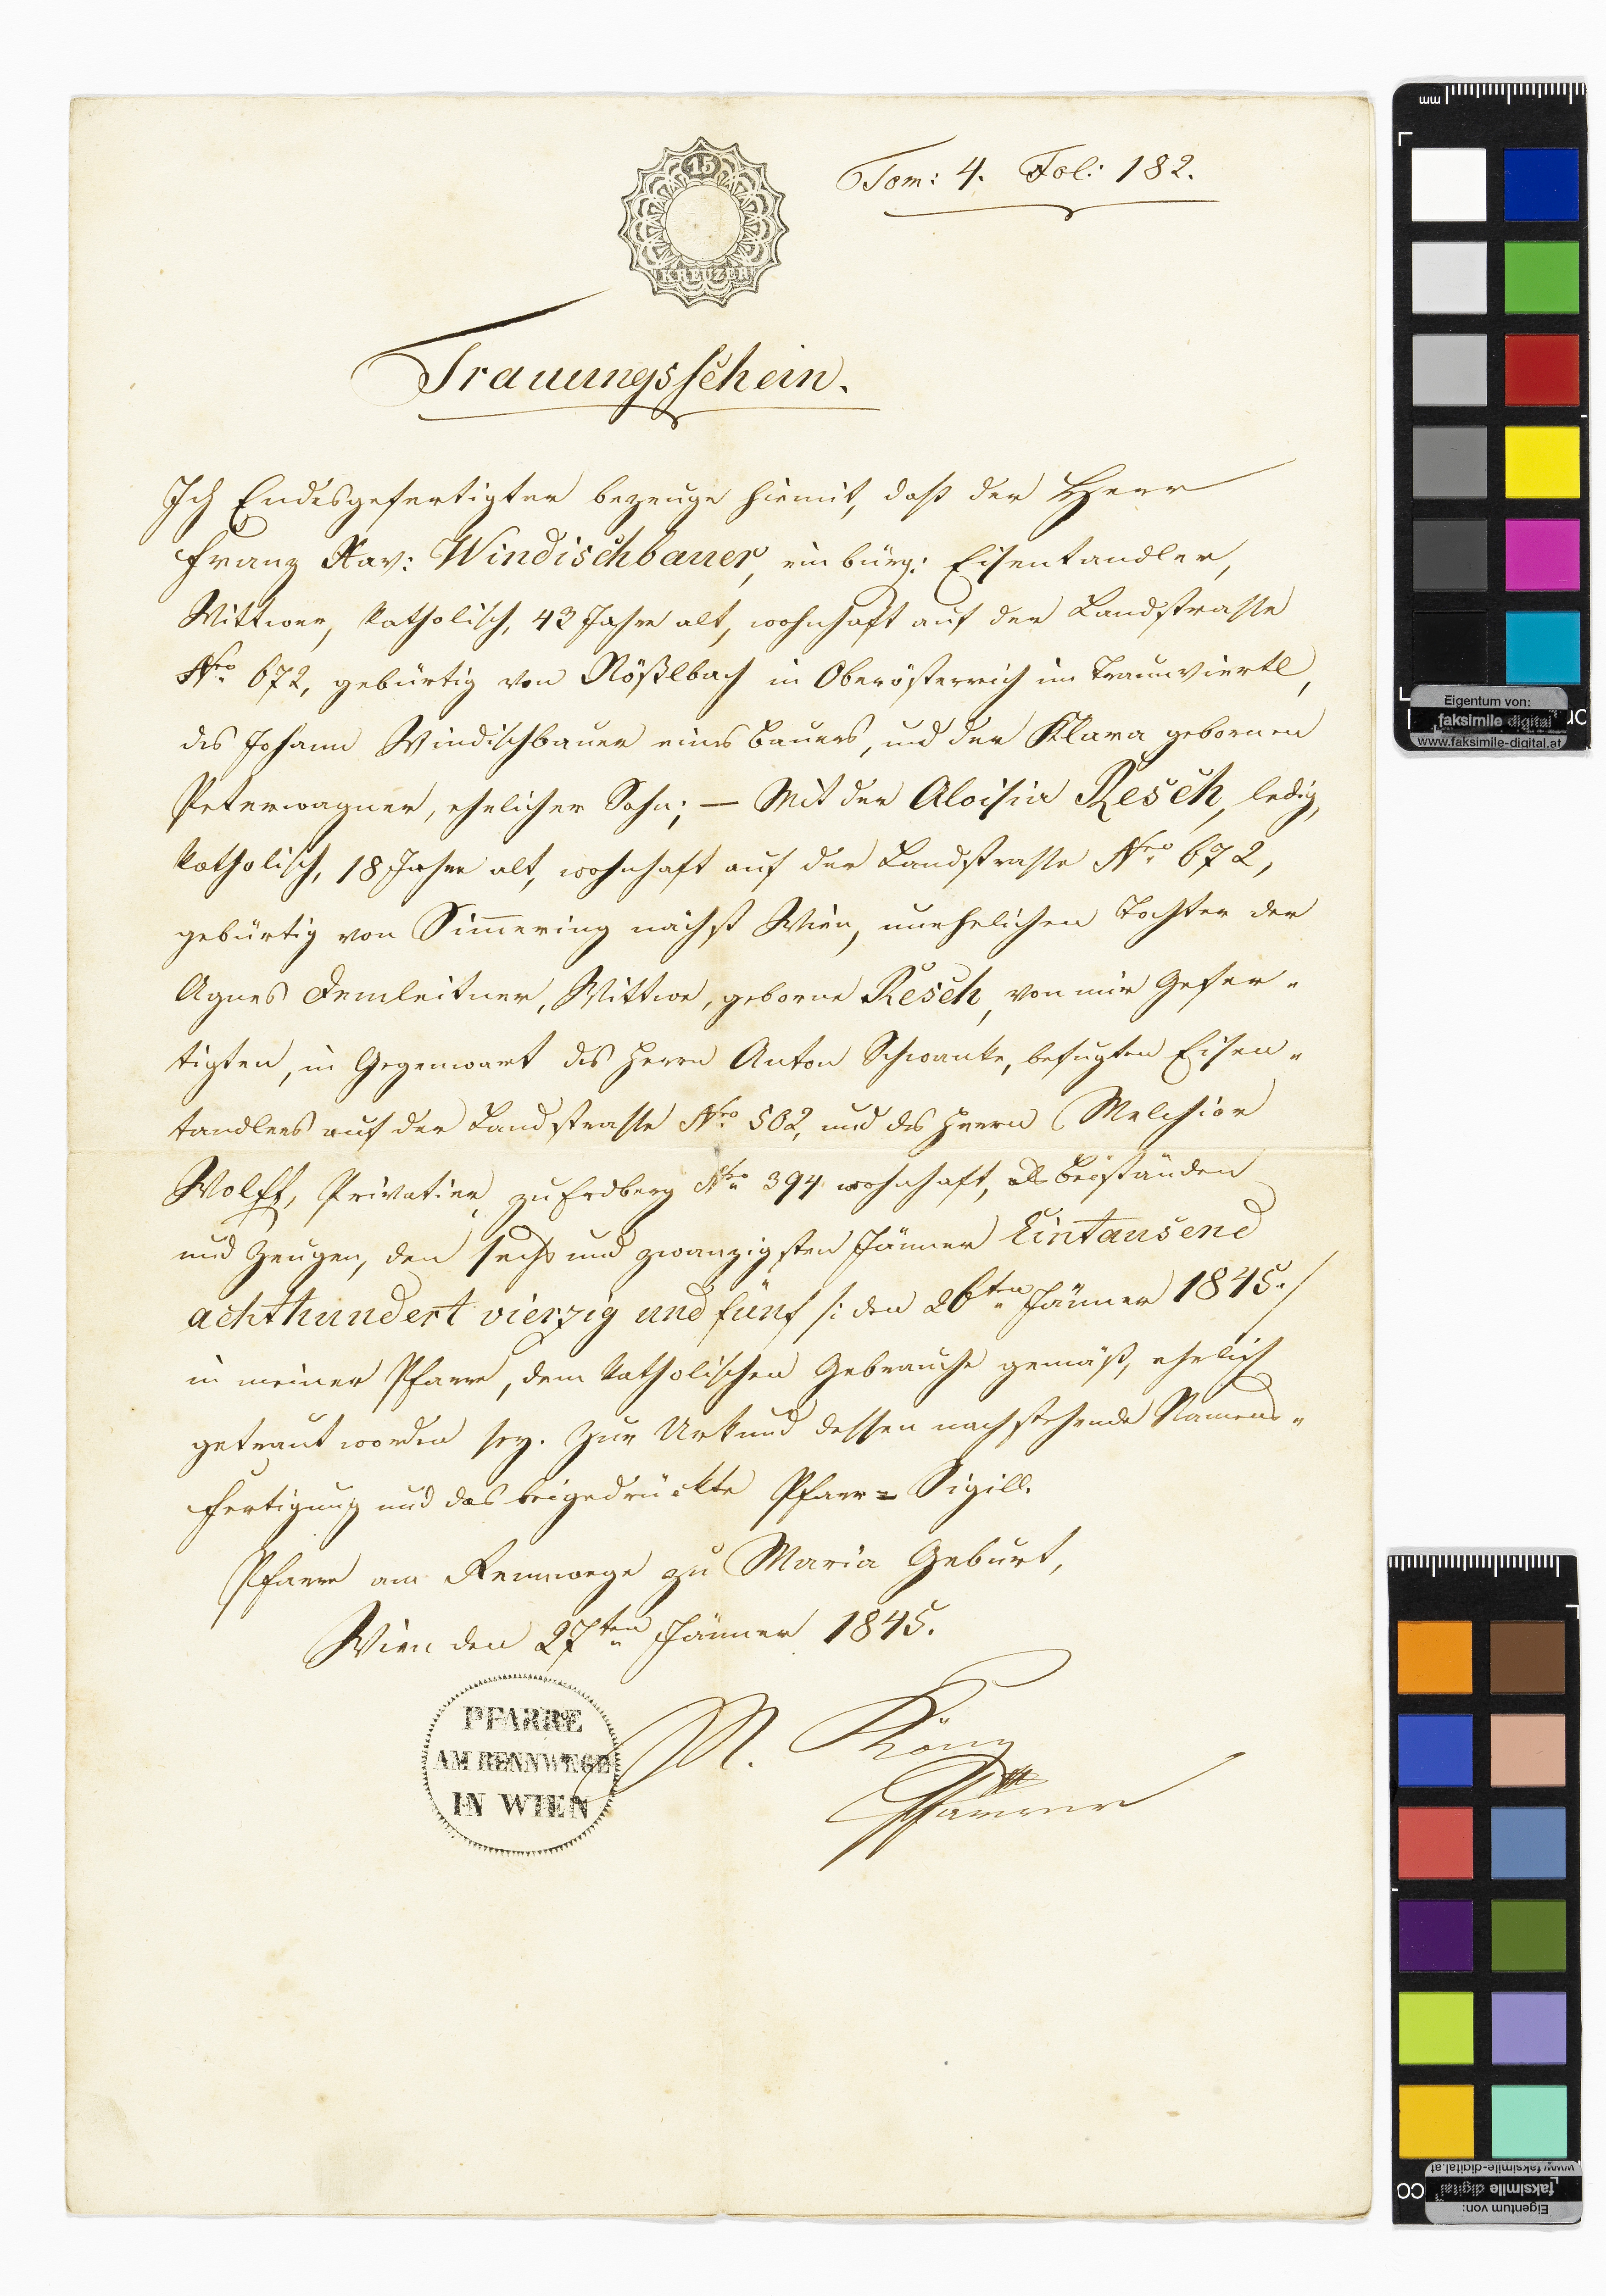 15
KREUZER
Tom: 4. Fol: 182.
Trauungsschein.
Ich Endesgefertigter bezeuge hiemit, daß der Herr
Franz Xav: Windischbauer, ein bürg: Eisentandler,
Wittwer, katholisch, 43 Jahre alt, wohnhaft auf der Landstrasse
Nro 672, gebürtig von Rößlbach in Oberösterreich im Traunviertl,
des Johann Windischbauer eines Bauers, und der Klara gebornen
Peterwagner, ehelicher Sohn; — Mit der Aloisia Resch, ledig,
katholisch, 18 Jahre alt, wohnhaft auf der Landstrasse Nro 672,
gebürtig von Simmering nächst Wien, unehelichen Tochter der
Agnes Demleitner, Wittwe, geborne Resch, von mir Gefer-
tigten, in Gegenwart des Herrn Anton Schwanke, befugten Eisen-
tandlers auf der Landstrasse Nro 502, und des Herrn Melchior
Wolff, Privatier zu Erdberg Nro 394 wohnhaft, als Beiständen
und Zeugen, den sechs und zwanzigsten Jänner Eintausend
achthundert vierzig und fünf /: den 26ten Jänner 1845:/
in meiner Pfarre, dem katholischen Gebrauche gemäß, ehelich
getraut worden sey. Zur Urkund dessen nachstehende Namens-
fertigung und das beigedrückte Pfarr=Sigill.
Pfarre am Rennwege zu Maria Geburt,
Wien den 27ten Jänner 1845.
PFARRE
AM RENNWEGE
IN WIEN
M. König
Pfarrer
mm
Eigentum von:
faksimile digital
www.faksimile-digital.at
www.faksimile-digital.at
faksimile digital
Eigentum von: